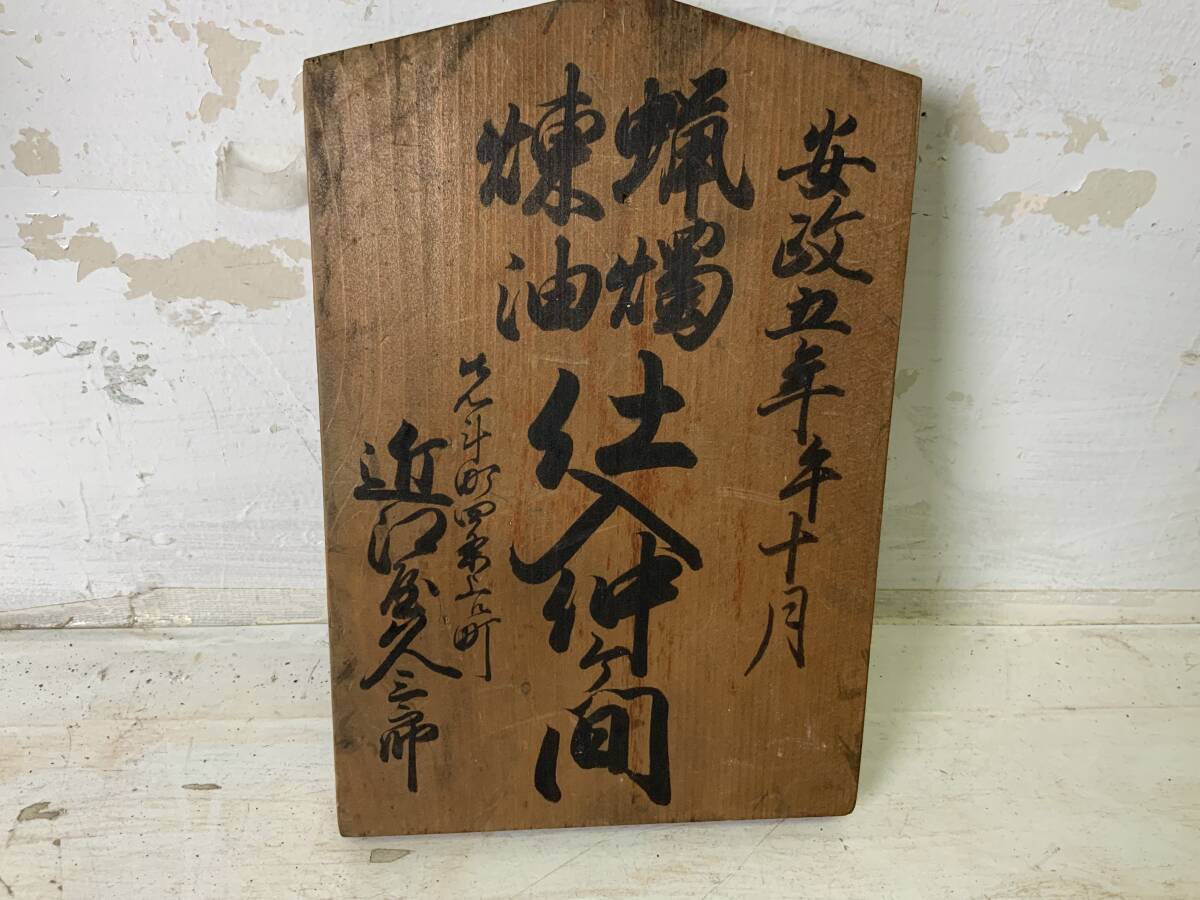 安政五年午十月
蝋燭
煉油
仕入仲ヶ間
先斗町四条上ル町
近江屋久三郎